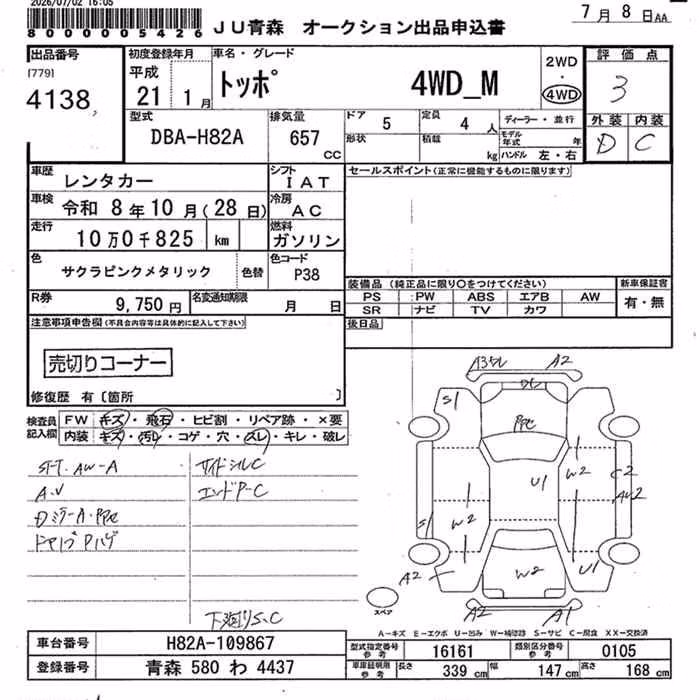 2026/07/02 16:05
800000005426
JU青森 オークション出品申込書
7月8日AA
出品番号
[779]
4138
初度登録年月
平成
21 1月
車名・グレード
トッポ 4WD_M
2WD
・
4WD
評価点
3
型式
DBA-H82A
排気量
657
CC
ドア
5
定員
4人
ディーラー・並行
形状
積載
kg
モデル年式 年
ハンドル 左・右
外装 内装
D C
車歴
レンタカー
シフト
IAT
セールスポイント(正常に機能するものに限ります)
車検
令和 8年10月(28日)
冷房
AC
走行
10万0千825 km
燃料
ガソリン
色
サクラピンクメタリック
色替
色コード
P38
装備品(純正品に限り〇をつけてください)
新車保証書
PS PW ABS エアB AW
SR ナビ TV カワ
有・無
R券
9,750円
名変通知期限
月 日
後日品
注意事項申告欄(不具合内容等は具体的に記入して下さい)
売切りコーナー
修復歴 有〔箇所 〕
検査員
記入欄
FW キズ・飛石・ヒビ割・リペア跡・×要
内装 キズ・汚レ・コゲ・穴・スレ・キレ・破レ
A・V
下廻りS、C
A2
S1
U1
W2
C2
S1
W2
A2
W2
U1
スペア
A2
A1
A-キズ E-エクボ U-凹み W-補修跡 S-サビ C-腐食 XX-交換済
車台番号
H82A-109867
型式指定番号
参考
16161
類別区分番号
参考
0105
登録番号
青森 580 わ 4437
車庫証明用
参考
長さ
339 cm
幅
147 cm
高さ
168 cm